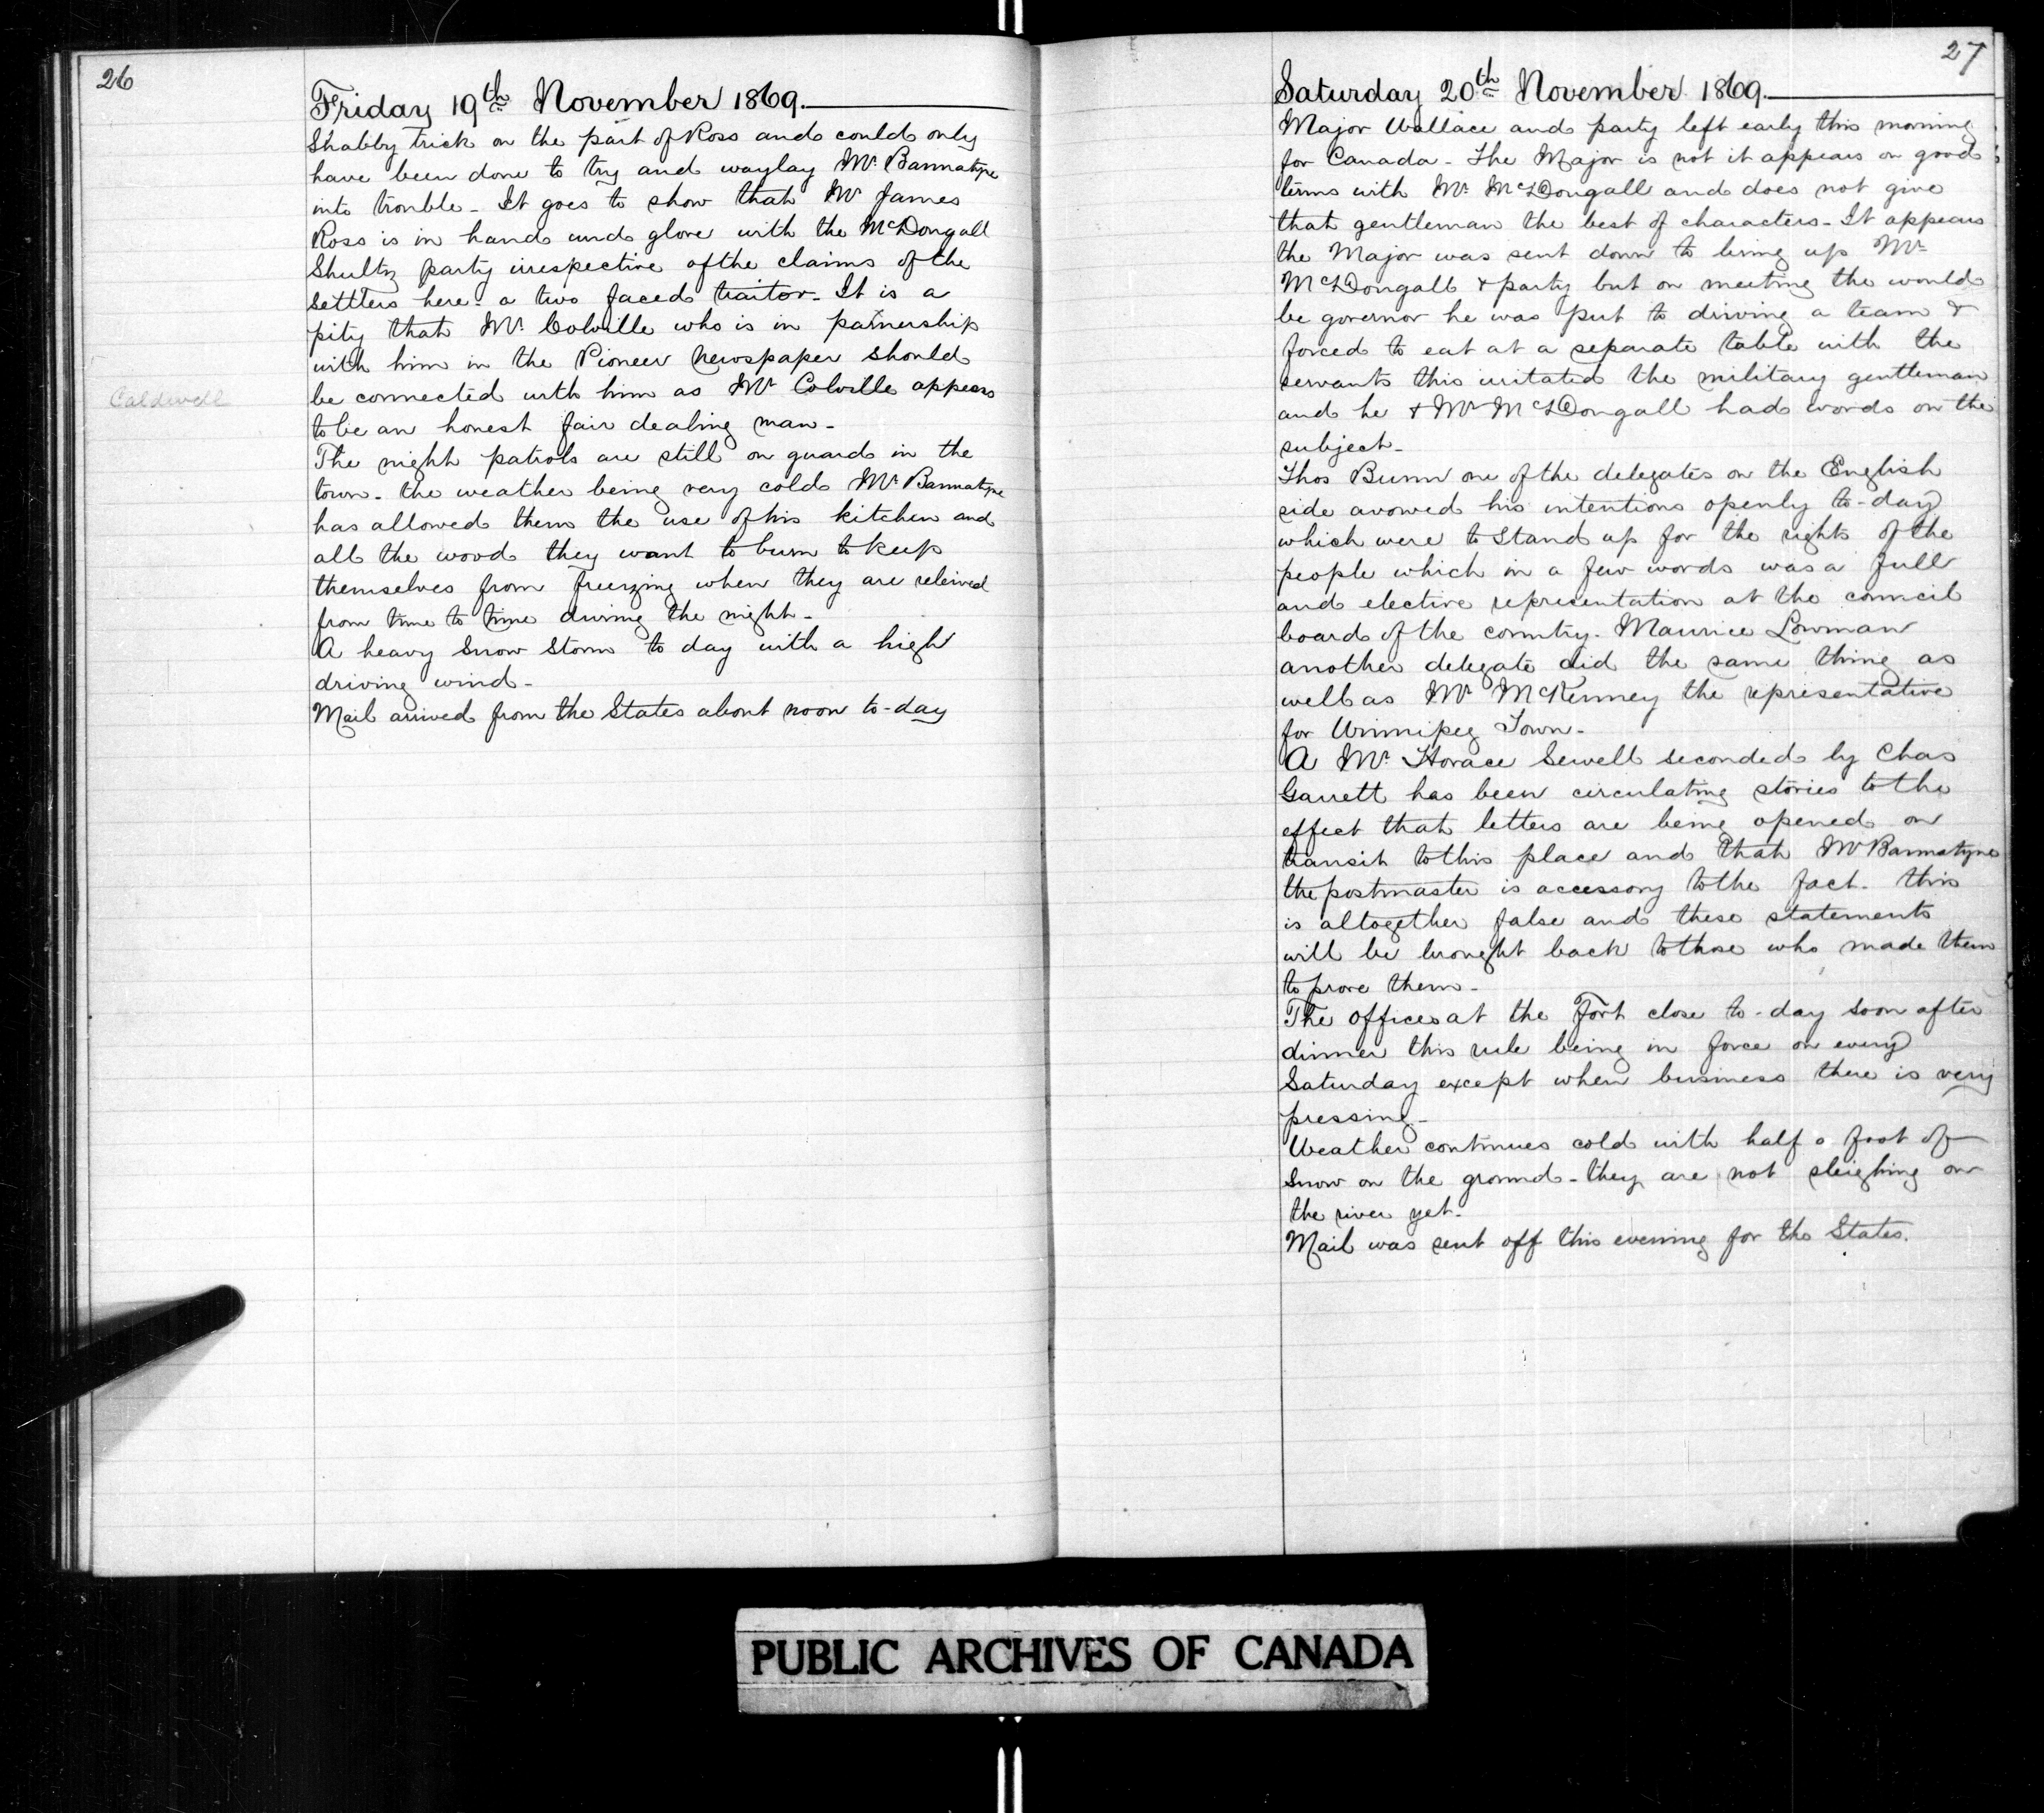 26
Friday 19th November 1869.
Shabby trick on the part of Ross and could only
have been done to try and waylay Mr Bannatyne
into trouble - It goes to show that Mr James
Ross is in hand and glove with the McDougall
Shultz party irrespective of the claims of the
settlers here - a two faced traitor - It is a
pity that Mr Colville who is in parnership
with him in the Pioneer Newspaper should
be connected with him as Mr Colville appears
Caldwell
to be an honest fair dealing man -
The night patrols are still on guard in the
town - the weather being very cold Mr Bannatyne
has allowed them the use of his kitchen and
all the wood they want to burn to keep
themselves from freezing when they are releived
from time to time during the night -
A heavy snow storm to day with a high
driving wind -
Mail arrived from the States about noon to-day
27
Saturday 20th November 1869.
Major Wallace and party left early this morning
for Canada - The Major is not it appears on good
terms with Mr McDougall and does not give
that gentleman the best of characters - It appears
the Major was sent down to bring up Mr
McDougall & party but on meeting the would
be governor he was put to driving a team &
forced to eat at a separate table with the
servants this irritated the military gentleman
and he & Mr McDougall had words on the
subject -
Thos Bunn one of the delegates on the English
side avowed his intentions openly to-day
which were to stand up for the rights of the
people which in a few words was a full
and elective representation at the council
board of the country. Maurice Lowman
another delegate did the same thing as
well as Mr McKenney the representative
for Winnipeg Town -
A Mr Horace Sewell seconded by Chas
Garrett has been circulating stories to the
effect that letters are being opened on
transit to this place and that Mr Bannatyne
the postmaster is accessory to the fact - this
is altogether false and these statements
will be brought back to those who made them
to prove them -
The offices at the Fort close to-day soon after
dinner this rule being in force on every
Saturday except when business there is very
pressing -
Weather continues cold with half a foot of
snow on the ground - they are not sleighing on
the river yet -
Mail was sent off this evening for the States.
PUBLIC ARCHIVES OF CANADA